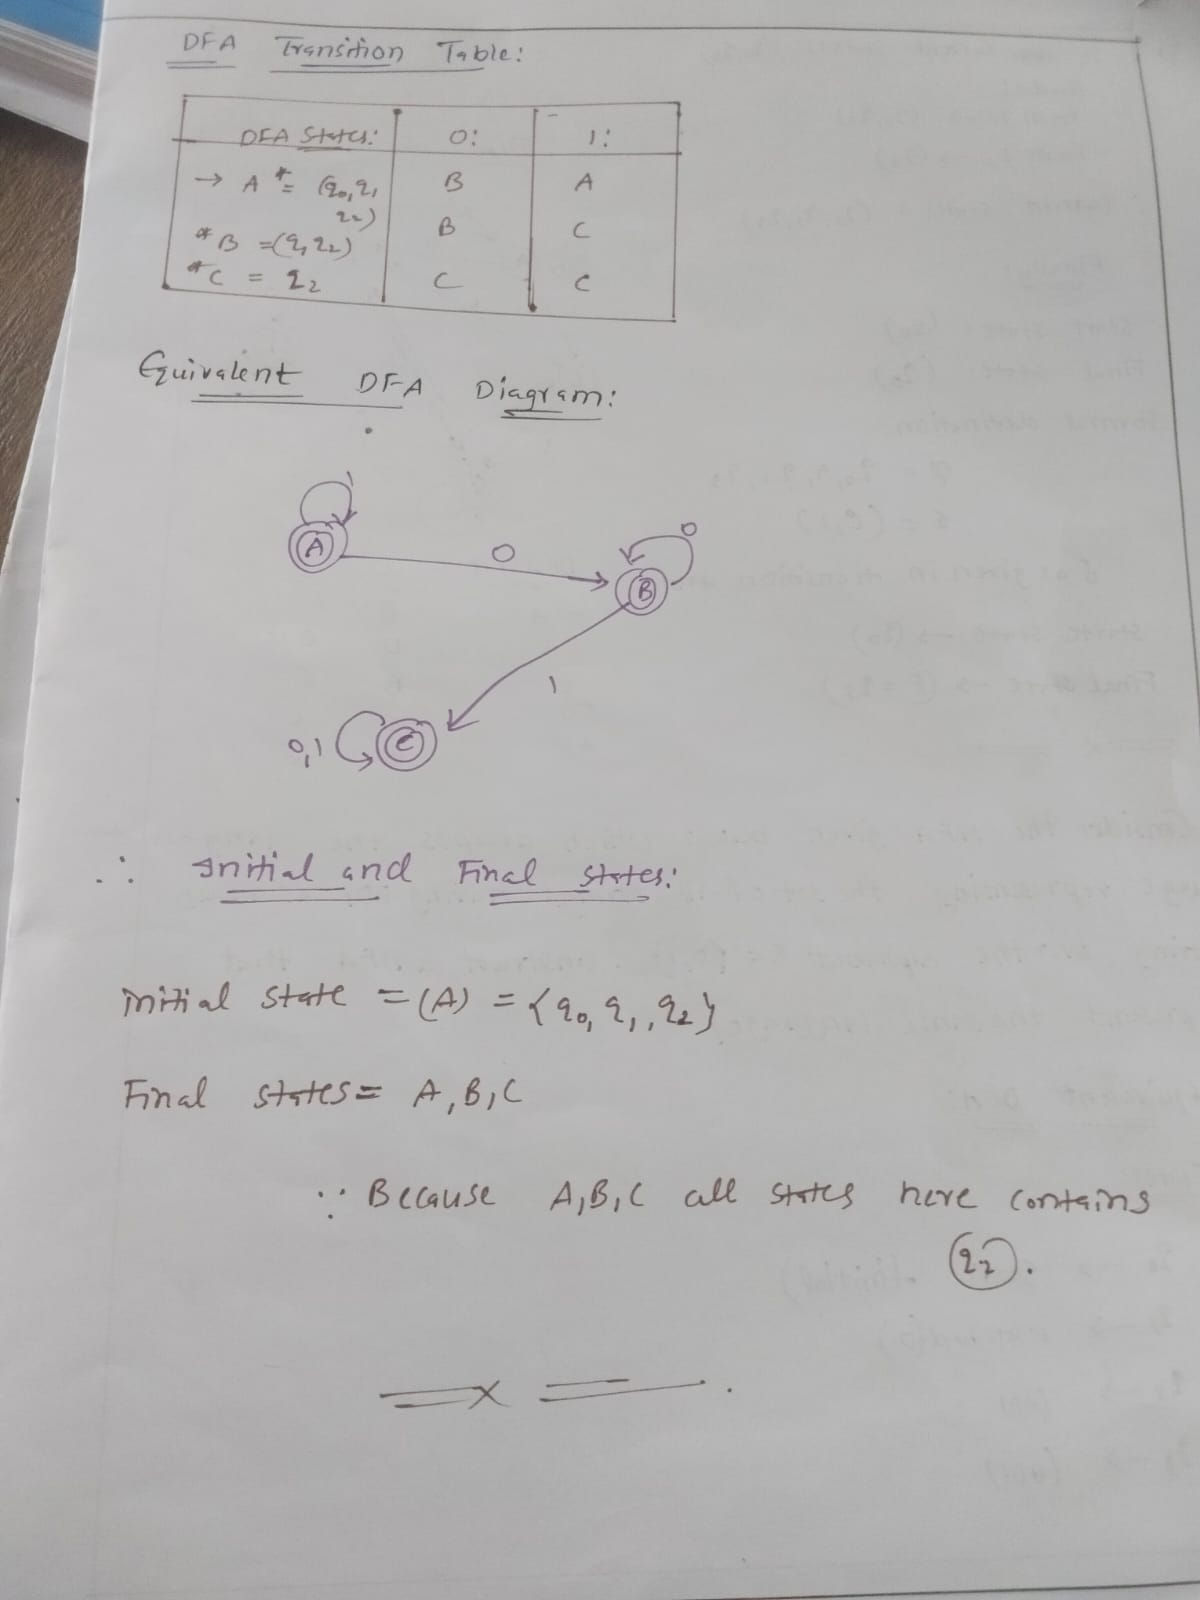 DFA Transition Table:
DFA States: 0: 1:
→ A * = (q₀, q₁ B A
q₂)
* B = (q₁ q₂) B C
* C = q₂ C C
Equivalent DFA Diagram:
1
A 0 0
B
1
0,1 C
∴ Initial and Final states:
initial state = (A) = {q₀, q₁, q₂}
Final states = A, B, C
∵ Because A, B, C all states here contains
q₂.
= x =.